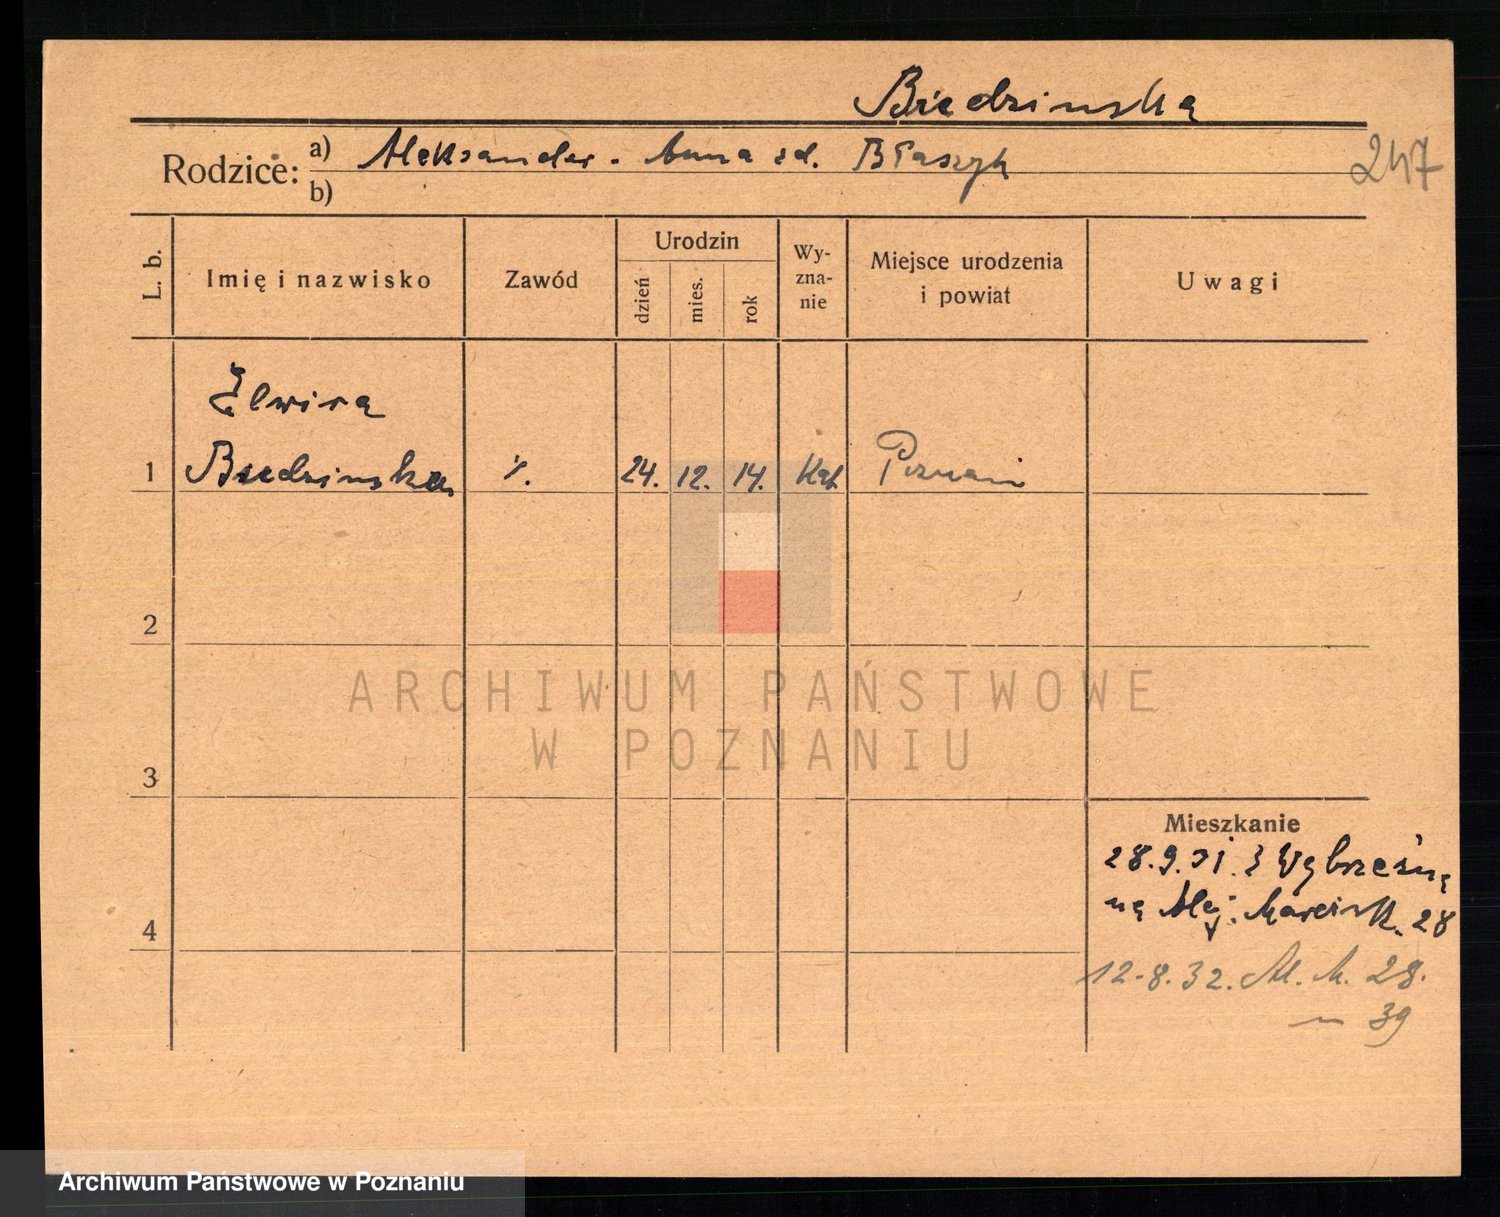 Biedzinska
Rodzice: a) Aleksander - Anna zd. Błaszyk
b)
247
L. b.
Imię i nazwisko
Zawód
Urodzin
dzień
mies.
rok
Wy-
zna-
nie
Miejsce urodzenia
i powiat
Uwagi
Elwira
1 Biedzinska %. 24. 12. 14. Kat Poznań
2
ARCHIWUM PAŃSTWOWE
W POZNANIU
3
Mieszkanie
28.9.31. z
na Alej. Marcink. 28
4
12.8.32. Al. M. 28.
39
Archiwum Państwowe w Poznaniu